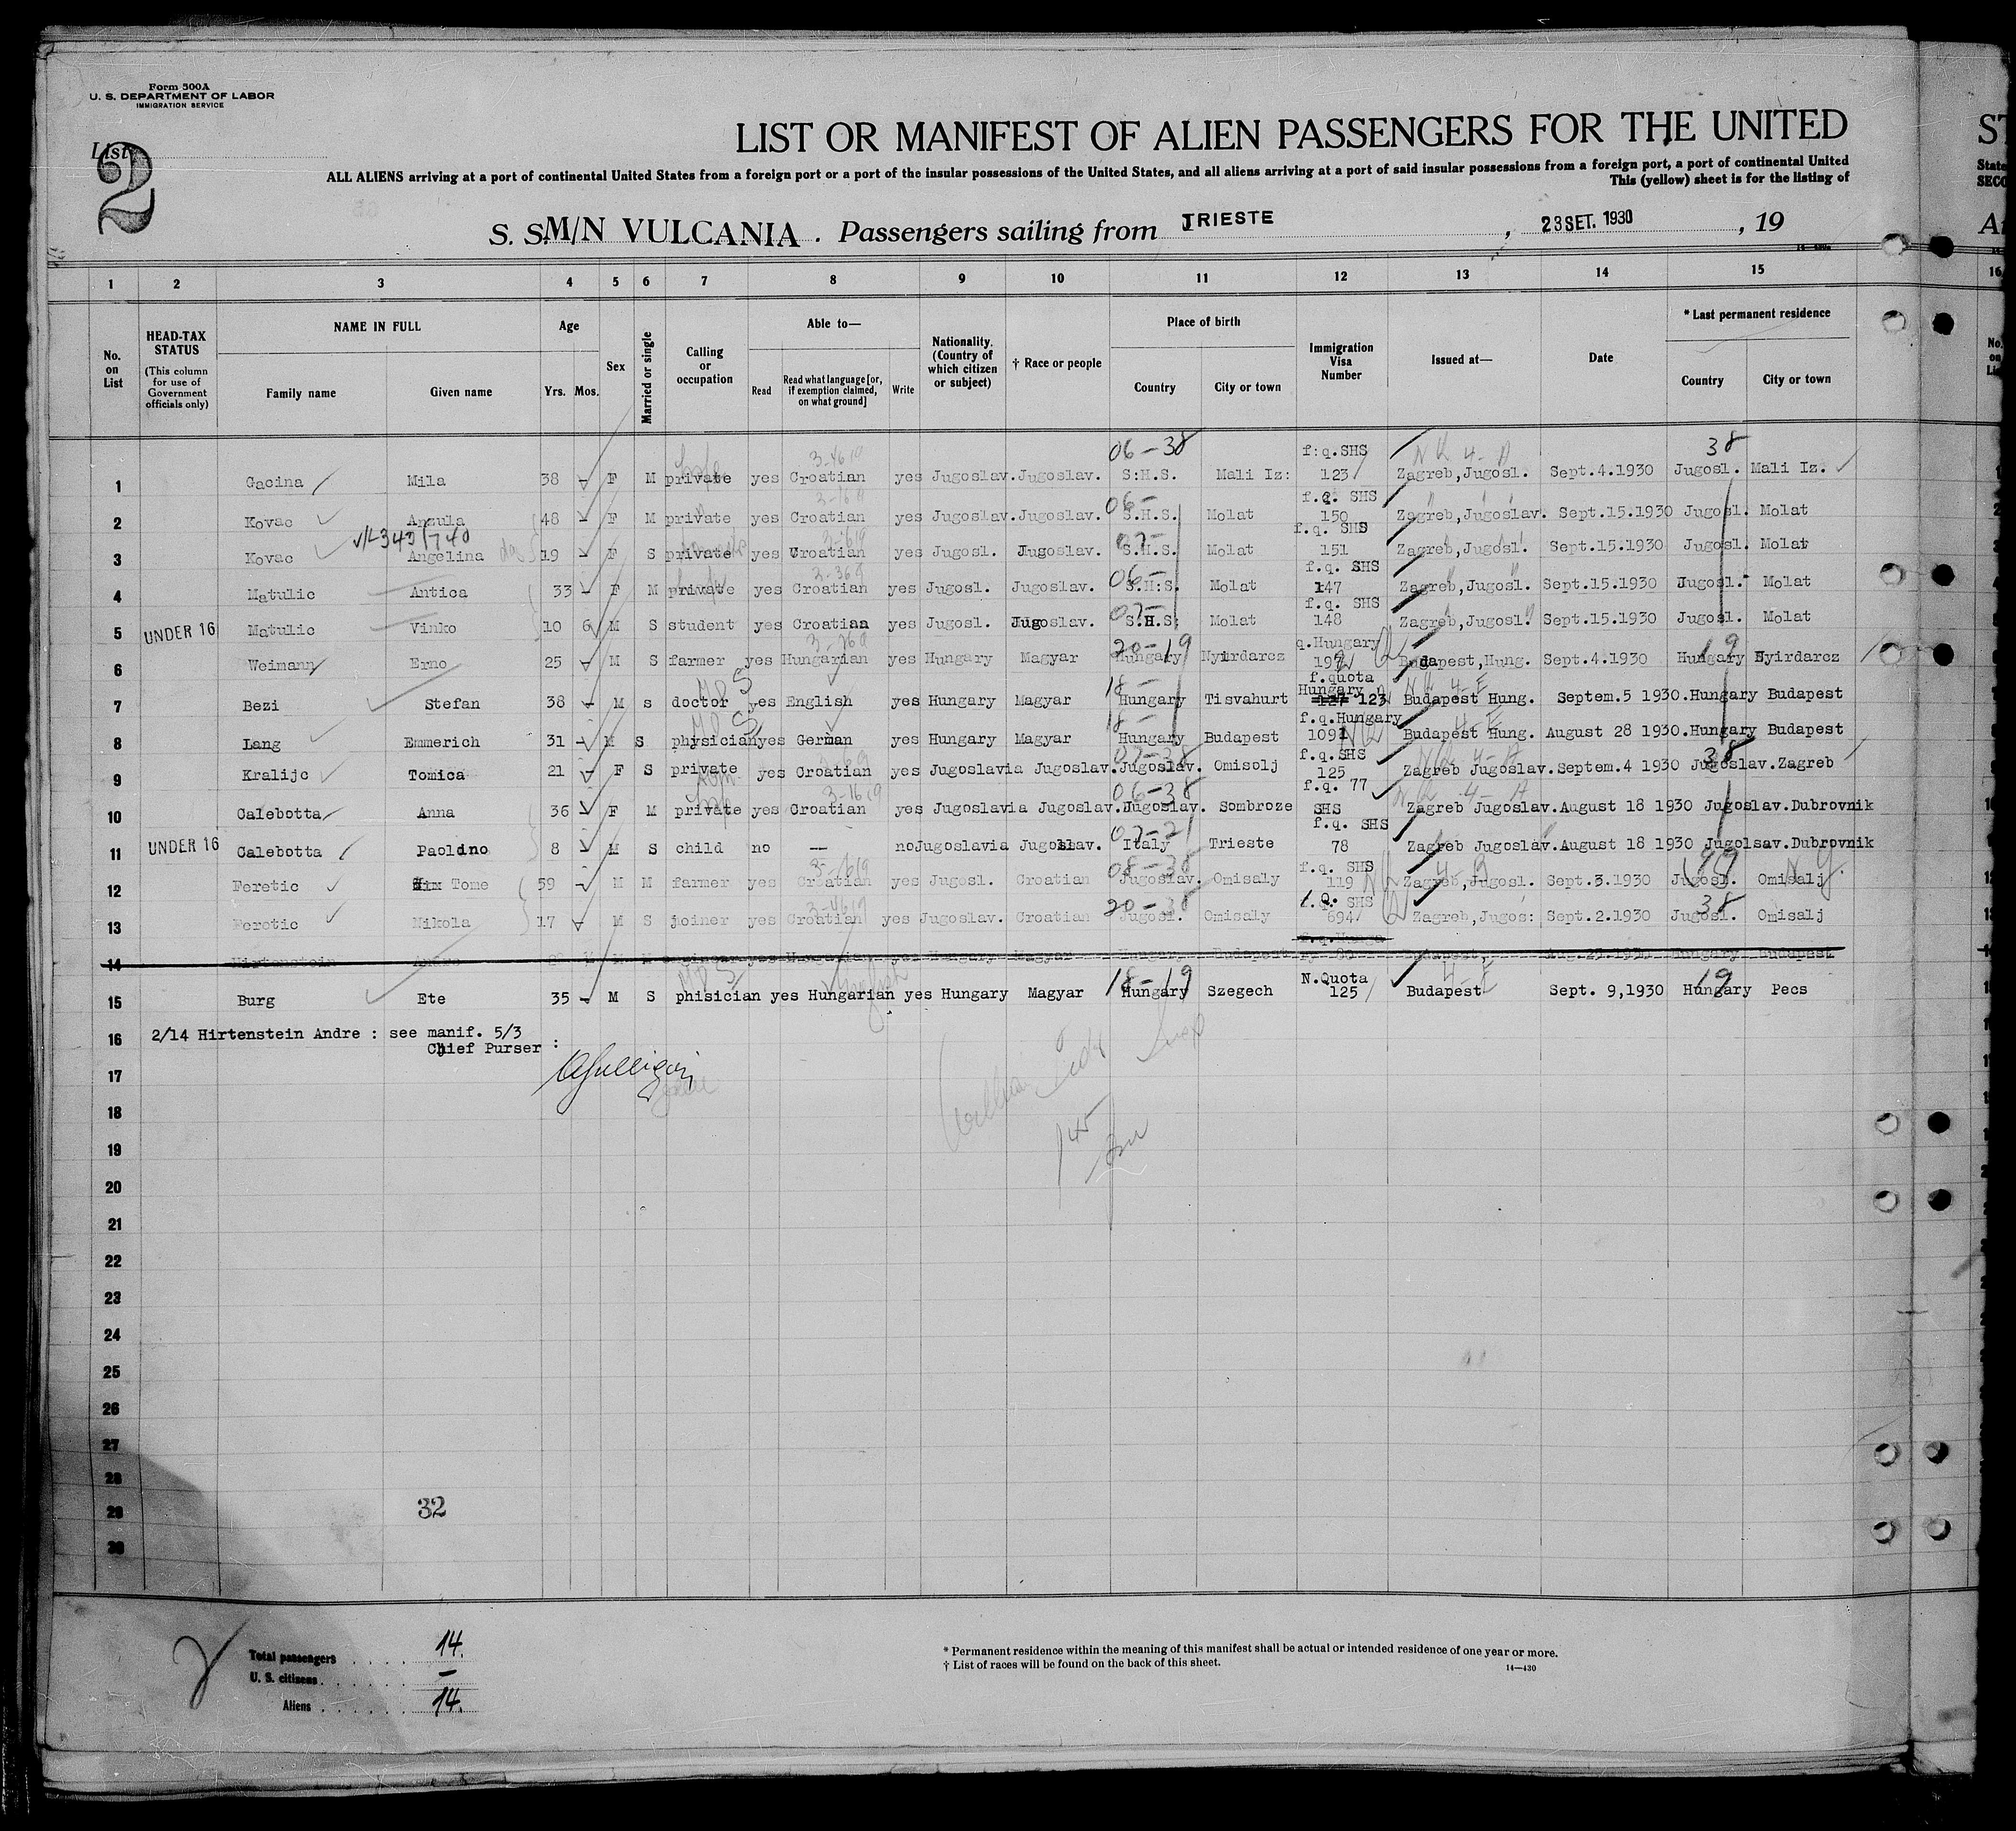 Form 500A
U. S. DEPARTMENT OF LABOR
IMMIGRATION SERVICE
List
2
LIST OR MANIFEST OF ALIEN PASSENGERS FOR THE UNITED
ALL ALIENS arriving at a port of continental United States from a foreign port or a port of the insular possessions of the United States, and all aliens arriving at a port of said insular possessions from a foreign port, a port of continental United
This (yellow) sheet is for the listing of
S. S. M/N VULCANIA . Passengers sailing from TRIESTE , 23 SET. 1930 , 19
1 2 3 4 5 6 7 8 9 10 11 12 13 14 15
No. on List
HEAD-TAX STATUS (This column for use of Government officials only)
NAME IN FULL Family name Given name
Age Yrs. Mos.
Sex
Married or single
Calling or occupation
Able to— Read Read what language [or, if exemption claimed, on what ground] Write
Nationality. (Country of which citizen or subject)
† Race or people
Place of birth Country City or town
Immigration Visa Number
Issued at—
Date
* Last permanent residence Country City or town
06-38 f:q.SHS 38
1 Gacina Mila 38 F M private yes Croatian yes Jugoslav. Jugoslav. S:H.S. Mali Iz: 123 Zagreb,Jugosl. Sept.4.1930 Jugosl. Mali Iz.
06- f.q. SHS
2 Kovac Anzula 48 F M private yes Croatian yes Jugoslav. Jugoslav. S.H.S. Molat 150 Zagreb,Jugoslav. Sept.15.1930 Jugosl. Molat
f.q. SHS
3 Kovac Angelina 19 F S private yes Croatian yes Jugosl. Jugoslav. S.H.S. Molat 151 Zagreb,Jugosl. Sept.15.1930 Jugosl. Molat
06- f.q. SHS
4 Matulic Antica 33 F M private yes Croatian yes Jugosl. Jugoslav. S.H.S. Molat 147 Zagreb,Jugosl. Sept.15.1930 Jugosl. Molat
07- f.q. SHS
5 UNDER 16 Matulic Vinko 10 6 M S student yes Croatian yes Jugosl. Jugoslav. S.H.S. Molat 148 Zagreb,Jugosl. Sept.15.1930 Jugosl. Molat
20-19 q.Hungary 19
6 Weimann Erno 25 M S farmer yes Hungarian yes Hungary Magyar Hungary Nyirdarcz 197 Budapest,Hung. Sept.4.1930 Hungary Nyirdarcz
18- f.quota Hungary
7 Bezi Stefan 38 M s doctor yes English yes Hungary Magyar Hungary Tisvahurt 127 123 Budapest Hung. Septem.5 1930. Hungary Budapest
18- f.q.Hungary
8 Lang Emmerich 31 M S physician yes German yes Hungary Magyar Hungary Budapest 1091 Budapest Hung. August 28 1930. Hungary Budapest
07-38 f.q.SHS 38
9 Kralijc Tomica 21 F S private yes Croatian yes Jugoslavia Jugoslav. Jugoslav. Omisolj 125 Zagreb Jugoslav. Septem.4 1930 Jugoslav. Zagreb
06-38 f.q. 77
10 Calebotta Anna 36 F M private yes Croatian yes Jugoslavia Jugoslav. Jugoslav. Sombroze SHS Zagreb Jugoslav. August 18 1930 Jugoslav. Dubrovnik
f.q. SHS
11 UNDER 16 Calebotta Paoldno 8 M S child no -- no Jugoslavia Jugoslav. Italy Trieste 78 Zagreb Jugoslav. August 18 1930 Jugolsav. Dubrovnik
08-38 f.q. SHS
12 Feretic Tome 59 M M farmer yes Croatian yes Jugosl. Croatian Jugoslav. Omisaly 119 Zagreb,Jugosl. Sept.3.1930 Jugosl. Omisalj
20-38 f.Q. SHS 38
13 Feretic Nikola 17 M S joiner yes Croatian yes Jugoslav. Croatian Jugosl. Omisaly 694 Zagreb,Jugos: Sept.2.1930 Jugosl. Omisalj
14 Hirtenstein Andre yes Hungarian yes Hungary Magyar Hungary Budapest Budapest, Hungary Budapest
18-19 N.Quota 19
15 Burg Ete 35 M S phisician yes Hungarian yes Hungary Magyar Hungary Szegech 125 Budapest Sept. 9,1930 Hungary Pecs
16 2/14 Hirtenstein Andre : see manif. 5/3
Chief Purser :
17
18
145
19
20
21
22
23
24
25
26
27
28
29 32
30
Total passengers 14.
U. S. citizens —
Aliens 14.
* Permanent residence within the meaning of this manifest shall be actual or intended residence of one year or more.
† List of races will be found on the back of this sheet.
14—430